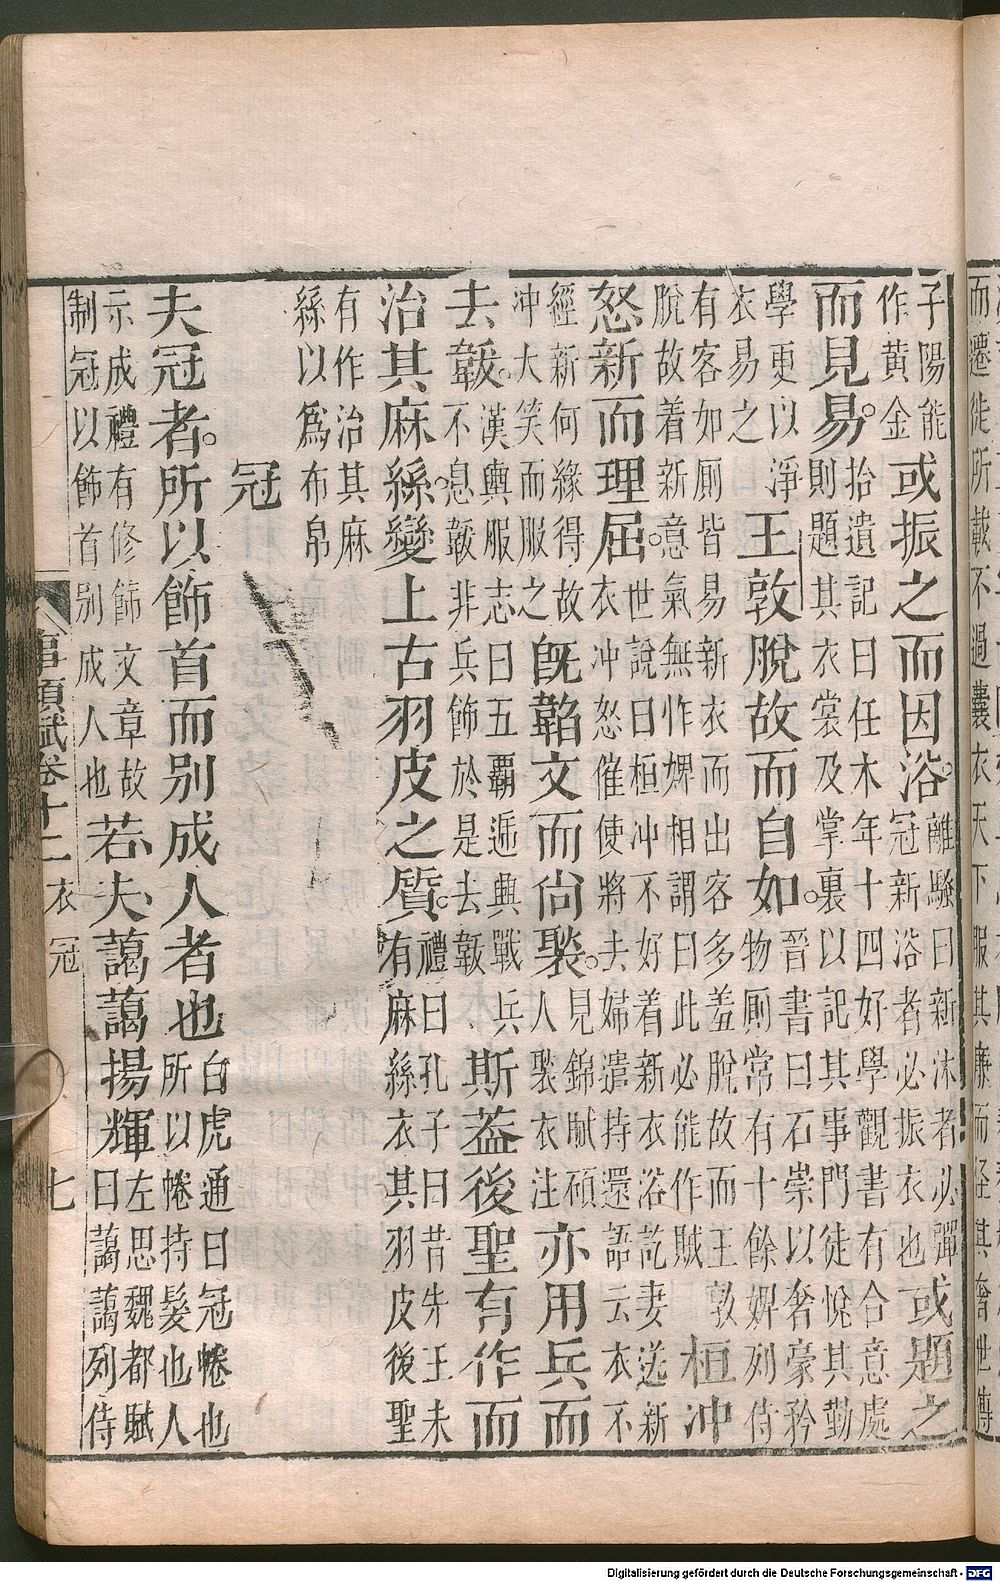 而遷徙所載不過囊衣天下服其廉而怪其奢世傳
子陽能
作黃金
或振之而因浴。
離騷曰新沐者必彈
冠新浴者必振衣也
或題之
而見易。
拾遺記曰任木年十四好學觀書有合意處
則題其衣裳及掌裏以記其事門徒悅其勤
學更以淨
衣易之
王敦脫故而自如。
晉書曰石崇以奢豪矜
物厠常有十餘婢列侍
有客如厠皆易新衣而出客多羞脫故而王敦
脫故着新意氣無怍婢相謂曰此必能作賊
桓冲
怒新而理屈。
世說曰桓冲不好着新衣浴訖妻送新
衣冲怒催使將去婦遣持還語云衣不
經新何緣得故
冲大笑而服之
既韜文而尚褧。
見錦賦碩
人褧衣注
亦用兵而
去韍。
漢輿服志曰五覇遞興戰兵
不息韍非兵飾於是去韍
斯葢後聖有作而
治其麻絲。變上古羽皮之質。
禮曰孔子曰昔先王未
有麻絲衣其羽皮後聖
有作治其麻
絲以爲布帛
冠
夫冠者。所以飾首而别成人者也
白虎通曰冠惓也
所以惓持髮也人
示成禮有修飾文章故
制冠以飾首别成人也
若夫藹藹揚輝
左思魏都賦
曰藹藹列侍
事類賦卷十二 衣 冠 七
Digitalisierung gefördert durch die Deutsche Forschungsgemeinschaft - DFG